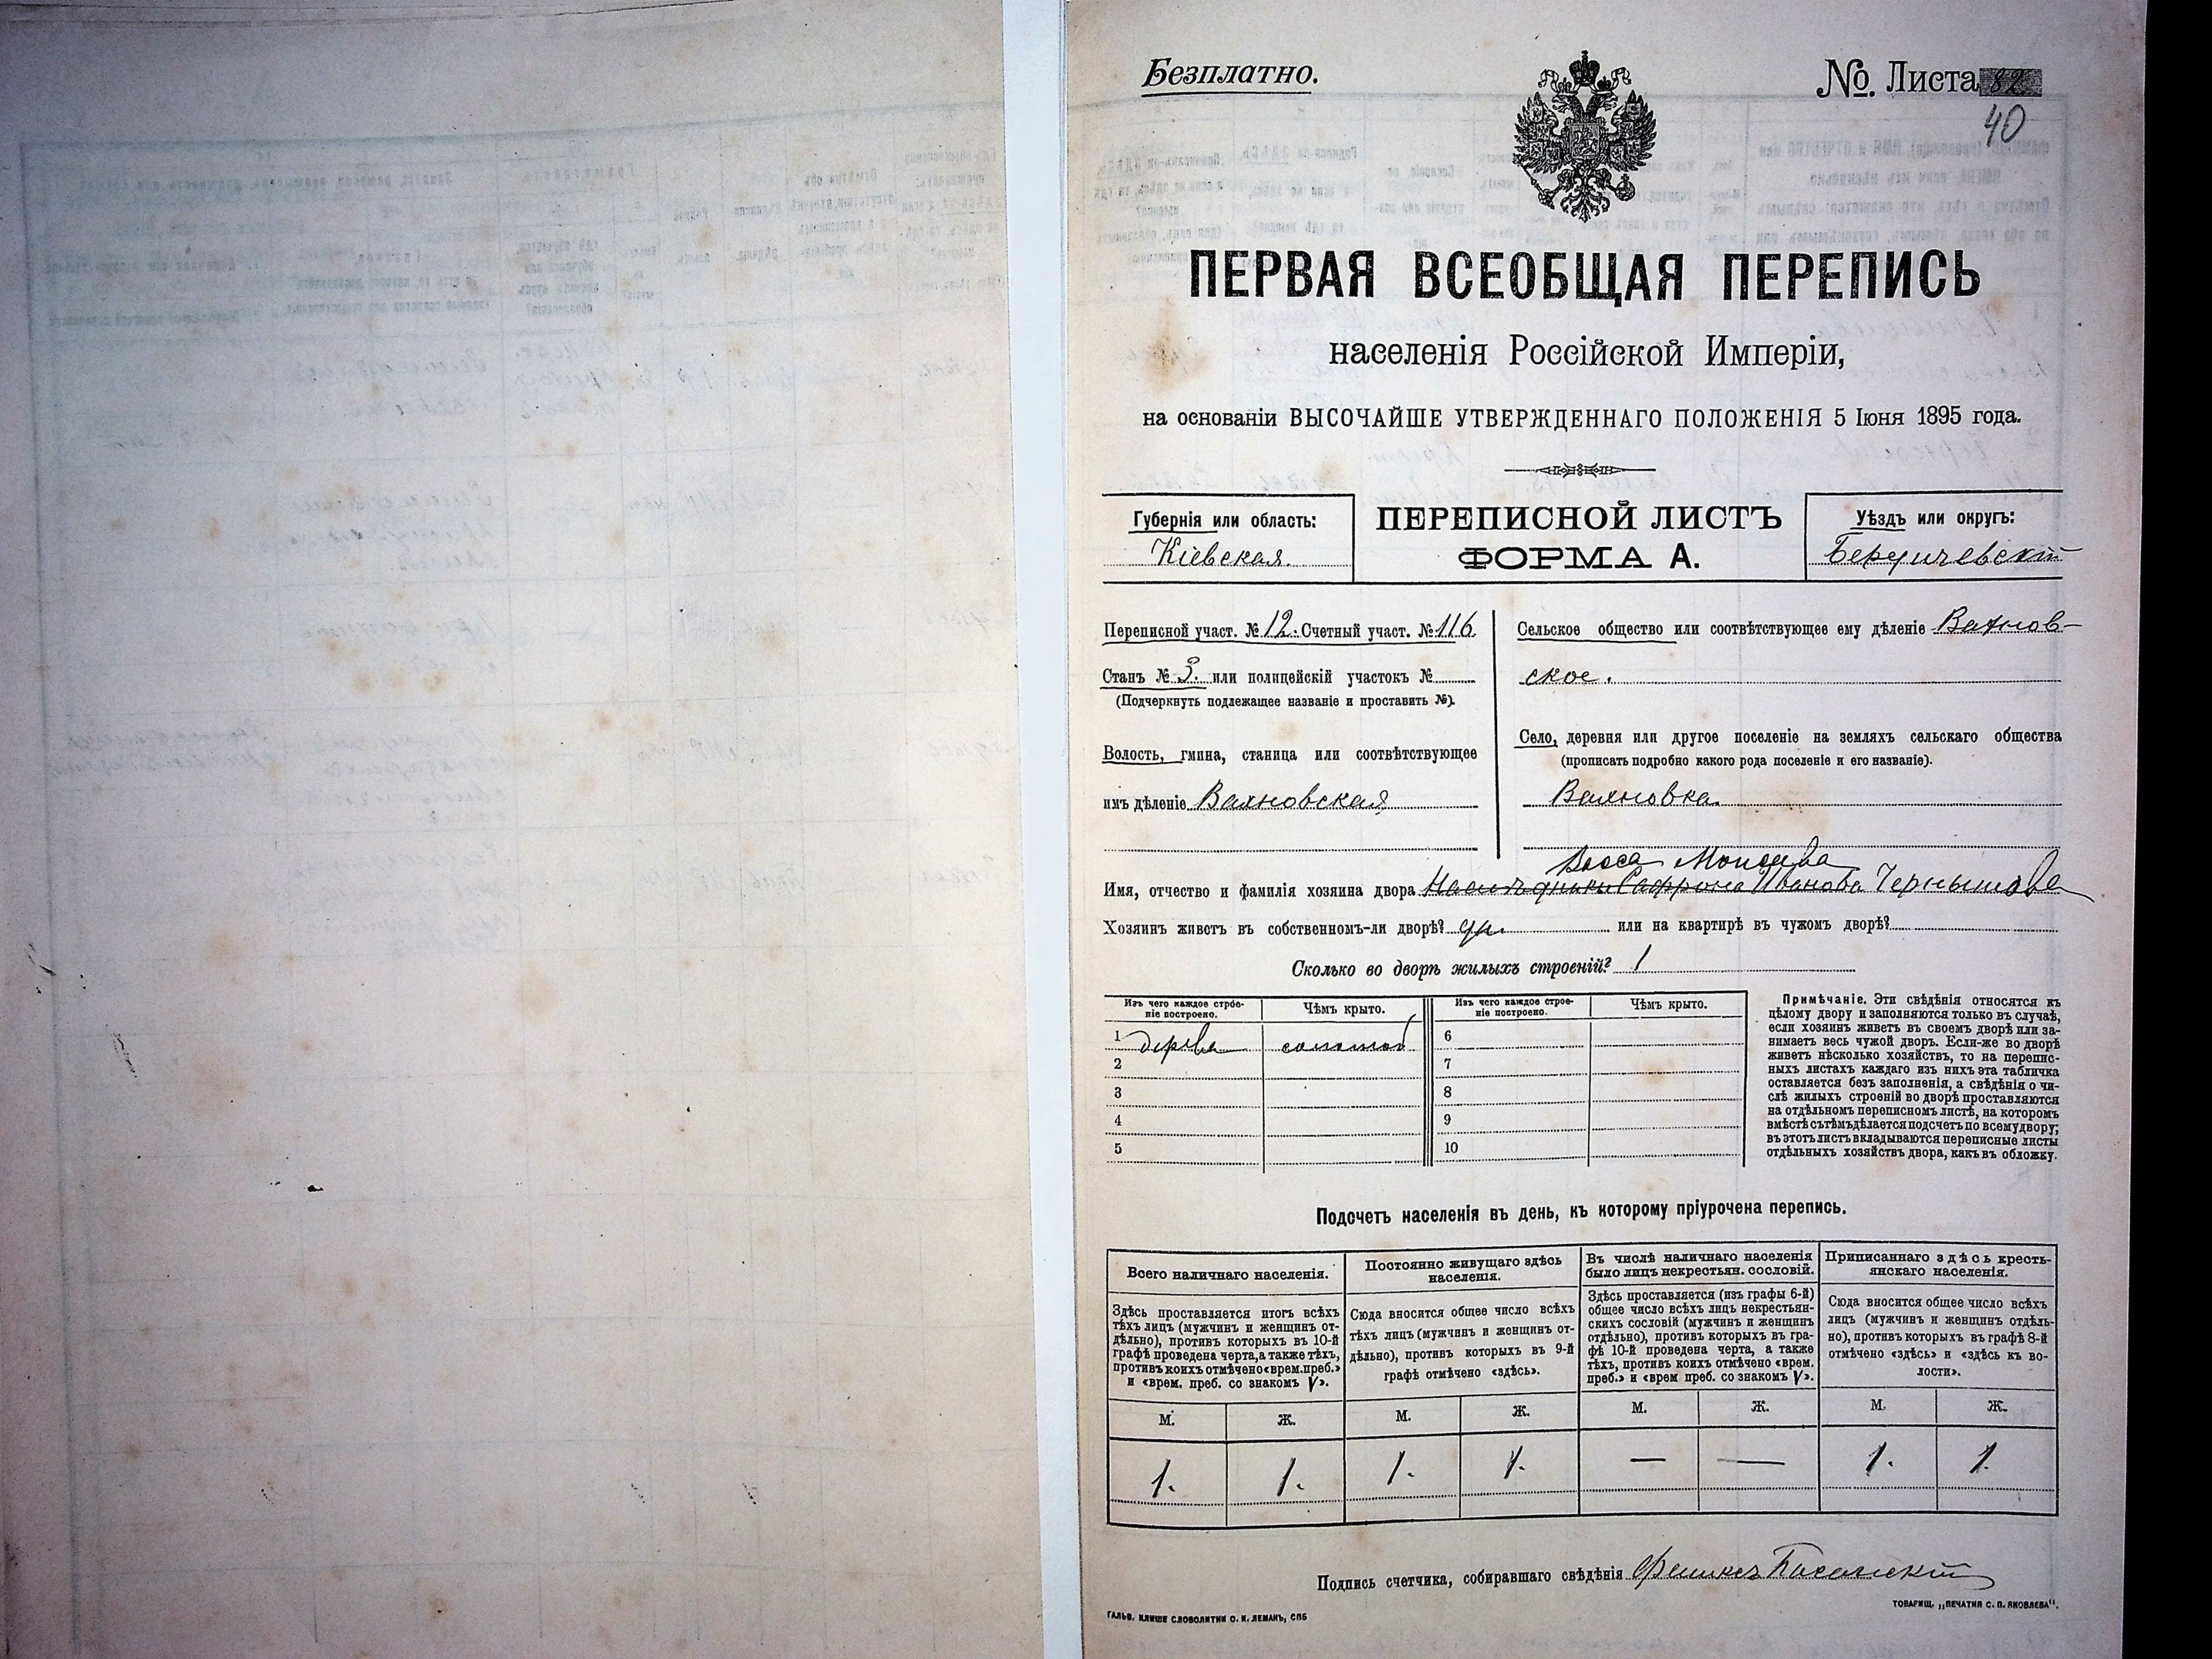 Безплатно.
No. Листа 82
40
ПЕРВАЯ ВСЕОБЩАЯ ПЕРЕПИСЬ
населенія Россійской Имперіи,
на основаніи ВЫСОЧАЙШЕ УТВЕРЖДЕННАГО ПОЛОЖЕНІЯ 5 Іюня 1895 года.
Губернія или область:
Кіевская.
ПЕРЕПИСНОЙ ЛИСТЪ
ФОРМА А.
Уѣздъ или округъ:
Бердичевскій
Переписной участ. № 12. Счетный участ. № 116
Станъ № 3. или полицейскій участокъ №
(Подчеркнуть подлежащее названіе и проставить №).
Волость, гмина, станица или соотвѣтствующее
имъ дѣленіе Вахновская
Сельское общество или соотвѣтствующее ему дѣленіе Вахнов-
ское.
Село, деревня или другое поселеніе на земляхъ сельскаго общества
(прописать подробно какого рода поселеніе и его названіе).
Вахновка
Имя, отчество и фамилія хозяина двора Наслѣдники Сафрона Иванова Чернышова
Хозяинъ живетъ въ собственномъ-ли дворѣ? да или на квартирѣ въ чужомъ дворѣ?
Сколько во дворѣ жилыхъ строеній? 1
Изъ чего каждое строе-
ніе построено.
Чѣмъ крыто.
Изъ чего каждое строе-
ніе построено.
Чѣмъ крыто.
1 дерева соломой 6
2 7
3 8
4 9
5 10
Примѣчаніе. Эти свѣдѣнія относятся къ
цѣлому двору и заполняются только въ случаѣ,
если хозяинъ живетъ въ своемъ дворѣ или за-
нимаетъ весь чужой дворъ. Если-же во дворѣ
живетъ нѣсколько хозяйствъ, то на перепис-
ныхъ листахъ каждаго изъ нихъ эта табличка
оставляется безъ заполненія, а свѣдѣнія о чи-
слѣ жилыхъ строеній во дворѣ проставляются
на отдѣльномъ переписномъ листѣ, на которомъ
вмѣстѣ съ тѣмъ дѣлается подсчетъ по всему двору;
въ этотъ листъ вкладываются переписные листы
отдѣльныхъ хозяйствъ двора, какъ въ обложку.
Подсчетъ населенія въ день, къ которому пріурочена перепись.
Всего наличнаго населенія.
Здѣсь проставляется итогъ всѣхъ
тѣхъ лицъ (мужчинъ и женщинъ от-
дѣльно), противъ которыхъ въ 10-й
графѣ проведена черта, а также тѣхъ,
противъ коихъ отмѣчено «врем. преб.»
и «врем. преб. со знакомъ V».
Постоянно живущаго здѣсь
населенія.
Сюда вносится общее число всѣхъ
тѣхъ лицъ (мужчинъ и женщинъ от-
дѣльно), противъ которыхъ въ 9-й
графѣ отмѣчено «здѣсь».
Въ числѣ наличнаго населенія
было лицъ некрестьян. сословій.
Здѣсь проставляется (изъ графы 6-й)
общее число всѣхъ лицъ некрестьян-
скихъ сословій (мужчинъ и женщинъ
отдѣльно), противъ которыхъ въ гра-
фѣ 10-й проведена черта, а также
тѣхъ, противъ коихъ отмѣчено «врем.
преб.» и «врем преб. со знакомъ V».
Приписаннаго здѣсь кресть-
янскаго населенія.
Сюда вносится общее число всѣхъ
лицъ (мужчинъ и женщинъ отдѣль-
но), противъ которыхъ въ графѣ 8-й
отмѣчено «здѣсь» и «здѣсь къ во-
лости».
М. Ж. М. Ж. М. Ж. М. Ж.
1. 1. 1. 1. — — 1. 1.
Подпись счетчика, собиравшаго свѣдѣнія Феликсъ
ГАЛЬВ. КЛИШЕ СЛОВОЛИТНИ О. И. ЛЕМАНЪ, СПБ
ТОВАРИЩ. „ПЕЧАТНЯ С. П. ЯКОВЛЕВА“.